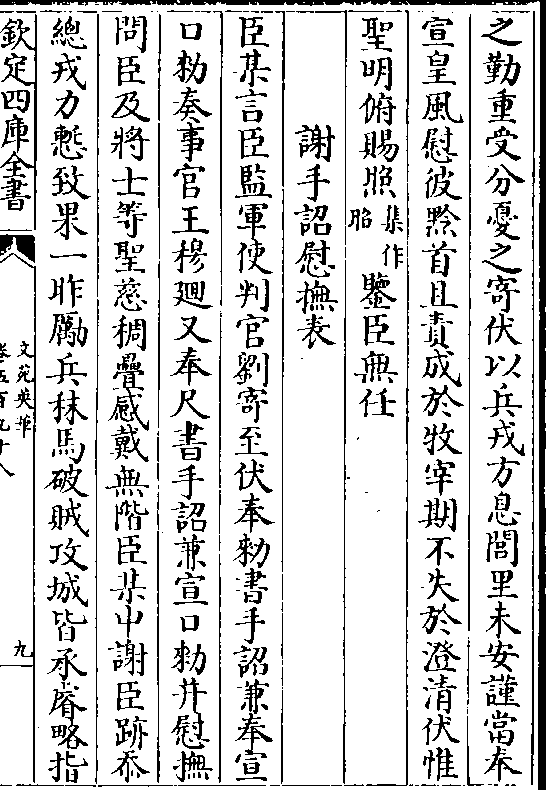 之勤重受分憂之寄伏以兵戎方息閭里未安謹當奉
宣皇風慰彼黔首且責成於牧宰期不失於澄清伏惟
聖明俯賜照集作昭鑒臣無任
謝手詔慰撫表
臣某言臣監軍使判官劉寄至伏奉勅書手詔兼奉宣
口勅奏事官王穆廻又奉尺書手詔兼宣口勅并慰撫
問臣及將士等聖慈稠疊感戴無階臣某中謝臣跡忝
總戎力慙致果一昨勵兵秣馬破賊攻城皆承睿略指
欽定四庫全書
文苑英華
卷五百九十八
九